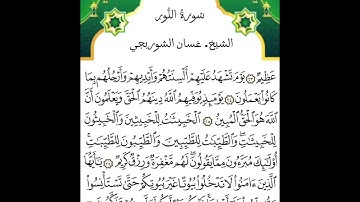 سورة النور
الشيخ. غسان الشوربجي
عَظِيمٌ ٢٣ يَوْمَ تَشْهَدُ عَلَيْهِمْ أَلْسِنَتُهُمْ وَأَيْدِيهِمْ وَأَرْجُلُهُم بِمَا
كَانُوا يَعْمَلُونَ ٢٤ يَوْمَئِذٍ يُوَفِّيهِمُ اللَّهُ دِينَهُمُ الْحَقَّ وَيَعْلَمُونَ أَنَّ
اللَّهَ هُوَ الْحَقُّ الْمُبِينُ ٢٥ الْخَبِيثَاتُ لِلْخَبِيثِينَ وَالْخَبِيثُونَ
لِلْخَبِيثَاتِ وَالطَّيِّبَاتُ لِلطَّيِّبِينَ وَالطَّيِّبُونَ لِلطَّيِّبَاتِ
أُولَٰئِكَ مُبَرَّءُونَ مِمَّا يَقُولُونَ لَهُم مَّغْفِرَةٌ وَرِزْقٌ كَرِيمٌ ٢٦ يَا أَيُّهَا
الَّذِينَ ءَامَنُوا لَا تَدْخُلُوا بُيُوتًا غَيْرَ بُيُوتِكُمْ حَتَّىٰ تَسْتَأْنِسُوا